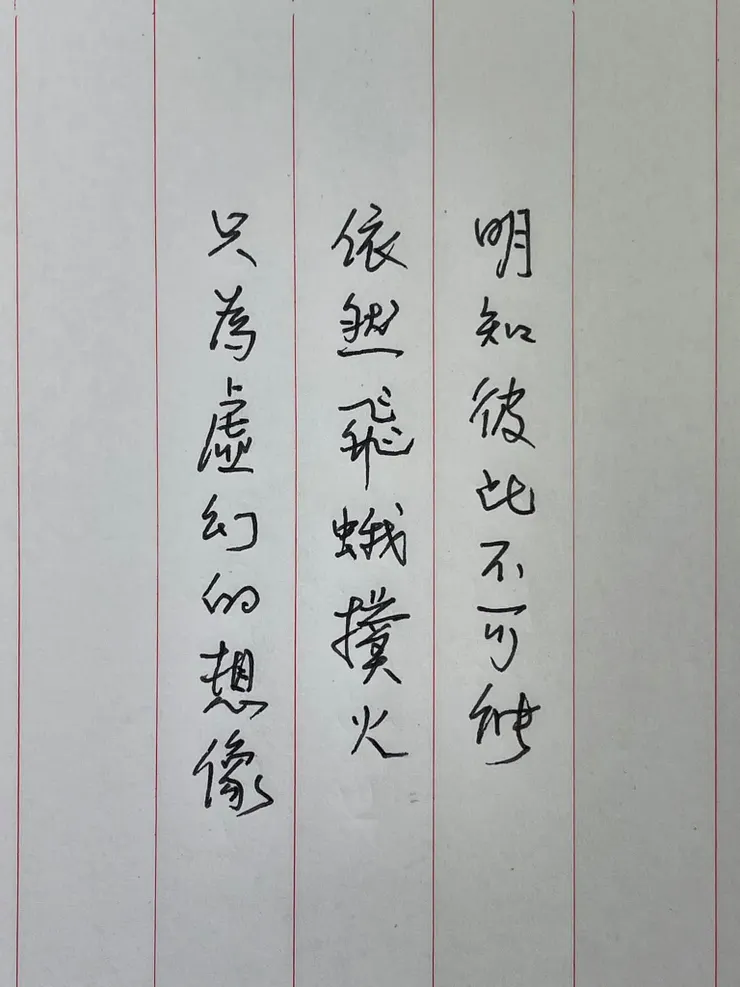 明知彼此不可能
依然飛蛾撲火
只為虛幻的想像